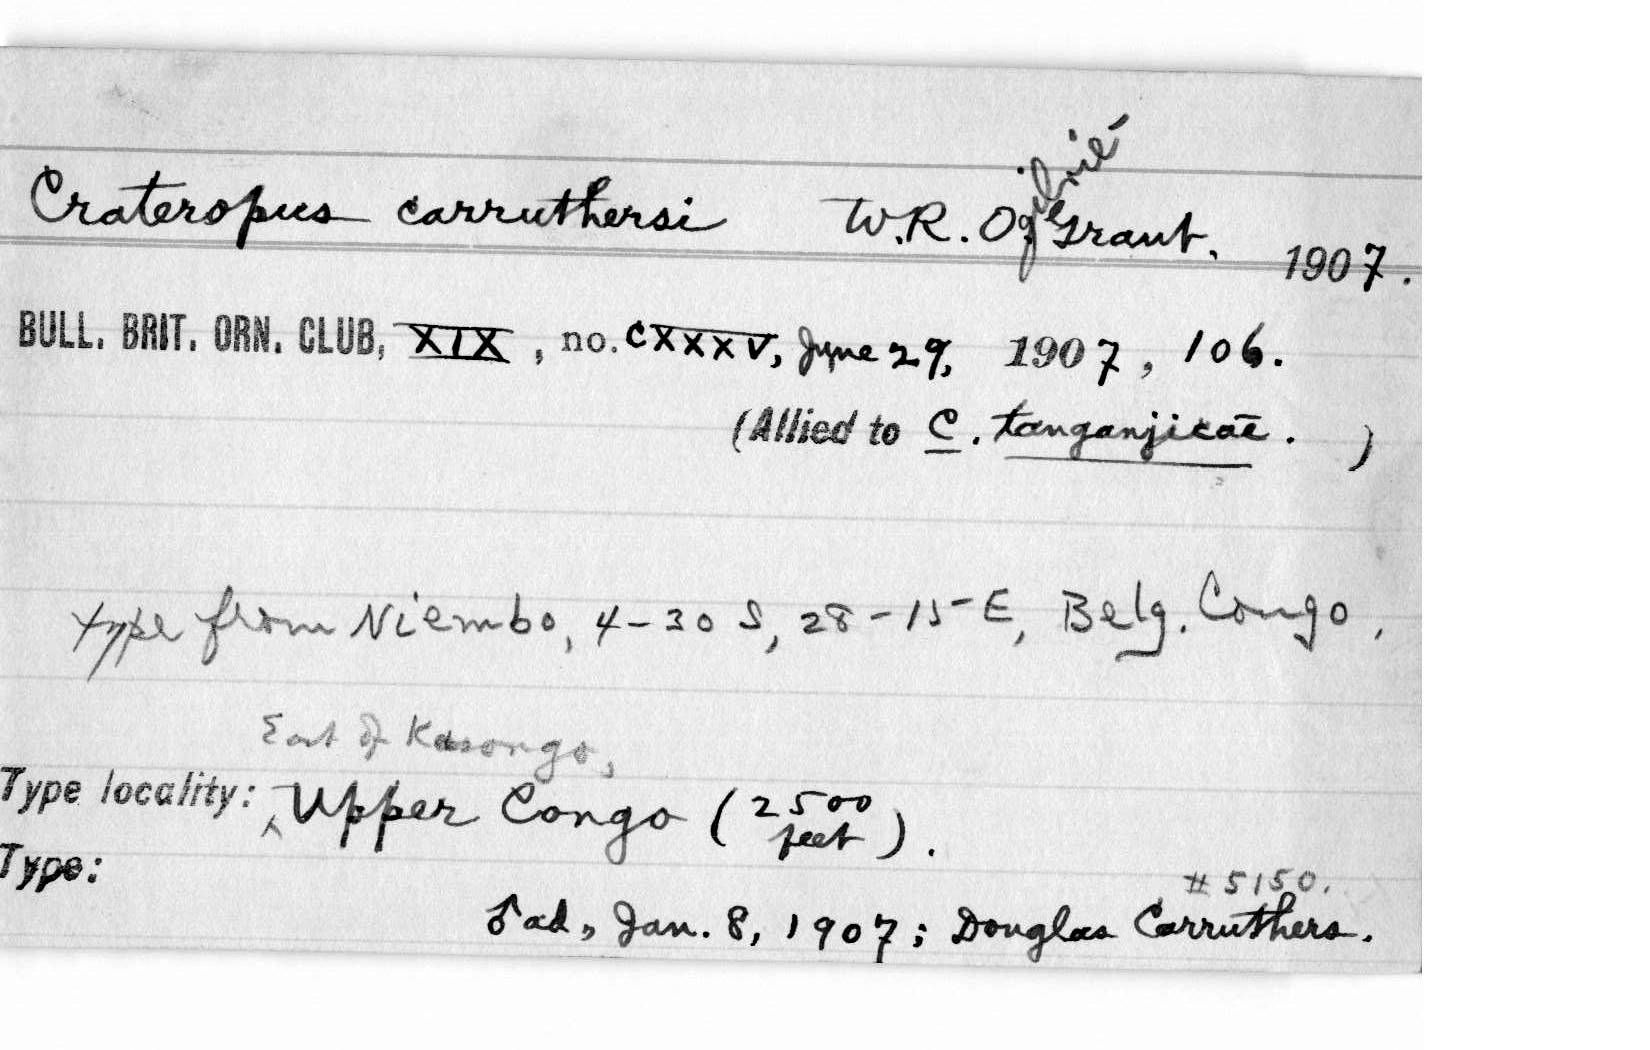 Crateropus carruthersi W.R. Ogilvie-Grant. 1907.
BULL. BRIT. ORN. CLUB, XIX, no. CXXXV, June 29, 1907, 106.
(Allied to C. tanganjicae. )
type from Niembo, 4-30 S, 28-15 E, Belg. Congo,
East of Kasongo,
Type locality: ^ Upper Congo (2500 feet).
Type:
#5150.
♂ ad, Jan. 8, 1907; Douglas Carruthers.